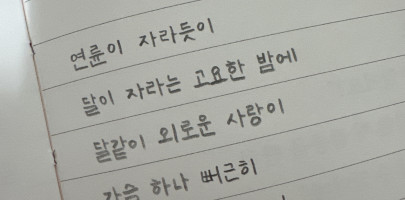 연륜이 자라듯이
달이 자라는 고요한 밤에
달같이 외로운 사랑이
가슴 하나 뻐근히